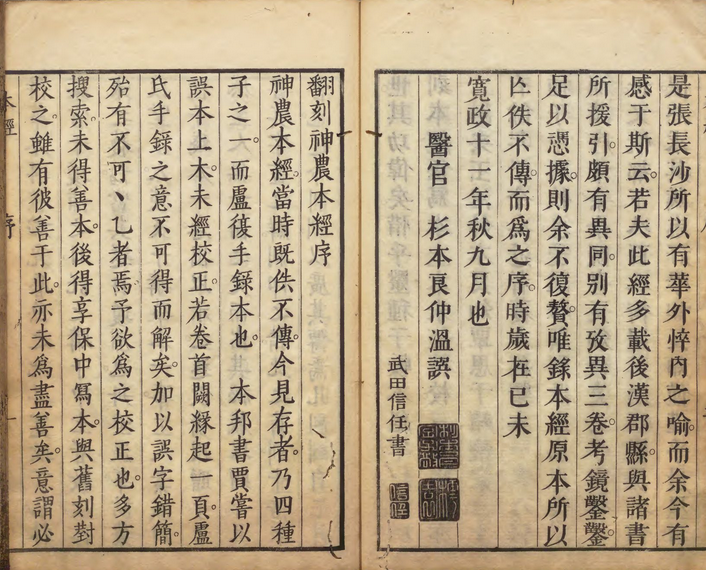 是張長沙所以有華外悴內之喻。而余今有
感于斯云。若夫此經多載後漢郡縣。與諸書
所援引。頗有異同。別有攷異三卷。考鏡鑿鑿。
足以憑據。則余不復贅。唯錄本經原本所以
亾佚不傳。而爲之序。時歲在己未
寬政十一年秋九月也
醫官 杉本良仲溫誤
武田信任書
翻刻神農本經序
神農本經。當時既佚不傳。今見存者。乃四種
子之一。而盧復手錄本也。本邦書賈嘗以
誤本上木。未經校正。若卷首闕緣起一頁。盧
氏手錄之意不可得而解矣。加以誤字錯簡。
殆有不可丶乙者焉。予欲爲之校正也。多方
搜索。未得善本。後得享保中寫本。與舊刻對
校之。雖有彼善于此。亦未爲盡善矣。意謂必
本經 序